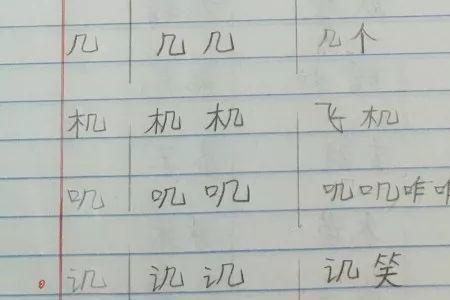 几 几 几 几个
机 机 机 飞机
叽 叽 叽 叽叽咋咋
讥 讥 讥 讥笑